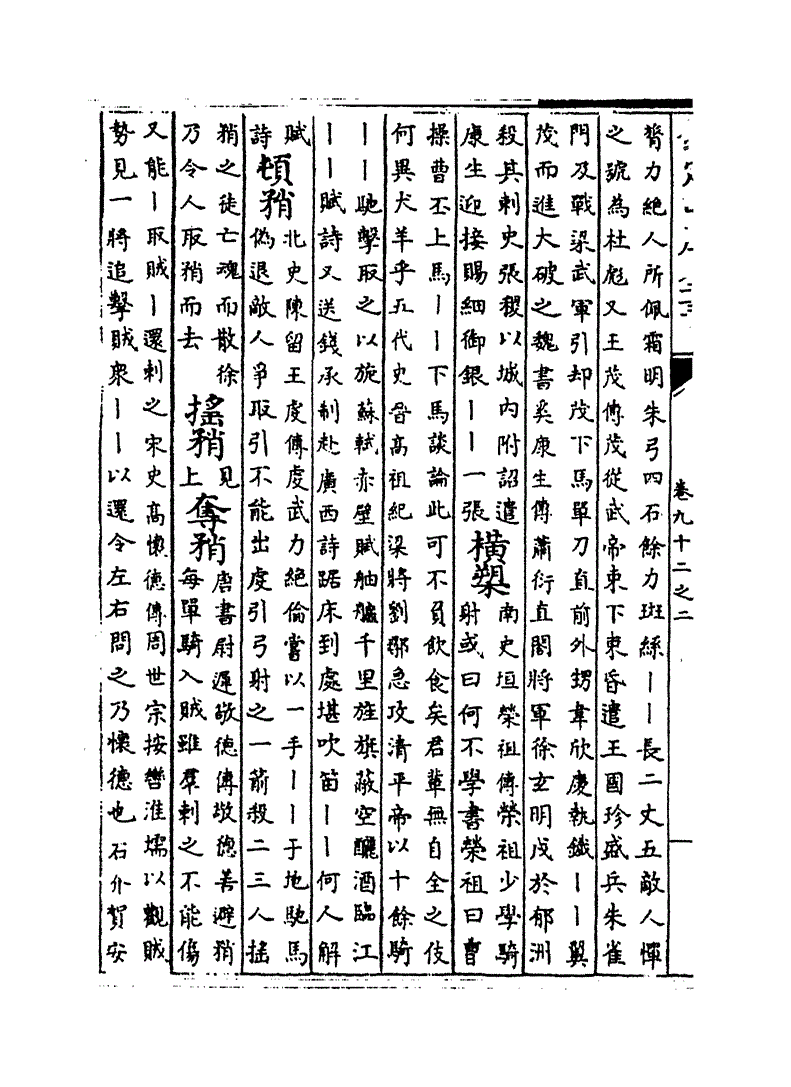 卷九十二之二
膂力絕人所佩霜明朱弓四石餘力斑絲丨丨長二丈五敵人憚
之號為杜彪又王茂傳茂從武帝東下東昏遣王國珍盛兵朱雀
門及戰梁武軍引却茂下馬單刀直前外甥韋欣慶執鐵丨丨翼
茂而進大破之魏書奚康生傳蕭衍直閤將軍徐玄明戍於郁洲
殺其刺史張稷以城內附詔遣
康生迎接賜細御銀丨丨一張
橫槊
南史垣榮祖傳榮祖少學騎
射或曰何不學書榮祖曰曹
操曹丕上馬丨丨下馬談論此可不負飲食矣君輩無自全之伎
何異犬羊乎五代史晉高祖紀梁將劉鄩急攻清平帝以十餘騎
丨丨馳擊取之以旋蘇軾赤壁賦舳艫千里旌旗蔽空釃酒臨江
丨丨賦詩又送錢承制赴廣西詩踞床到處堪吹笛丨丨何人解
賦
詩
頓矟
北史陳留王虔傳虔武力絕倫嘗以一手丨丨于地馳馬
偽退敵人爭取引不能出虔引弓射之一箭殺二三人搖
矟之徒亡魂而散徐
乃令人取矟而去
搖矟
見
上
奪矟
唐書尉遲敬德傳敬德善避矟
每單騎入賊雖羣刺之不能傷
又能丨取賊丨還刺之宋史高懷德傳周世宗按轡淮壖以觀賊
勢見一將追擊賊衆丨丨以還令左右問之乃懷德也石介賀安